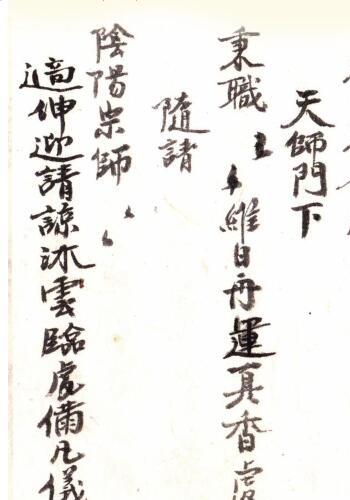 天師門下
秉職 維日再運真香虔
隨請
陰陽宗師
適伸迎請諒沐雲臨虔備凡儀